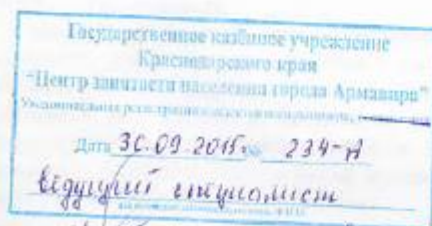 Государственное казённое учреждение
Краснодарского края
"Центр занятости населения города Армавира"
Дата 30.09.2015г. № 234-А
ведущий специалист